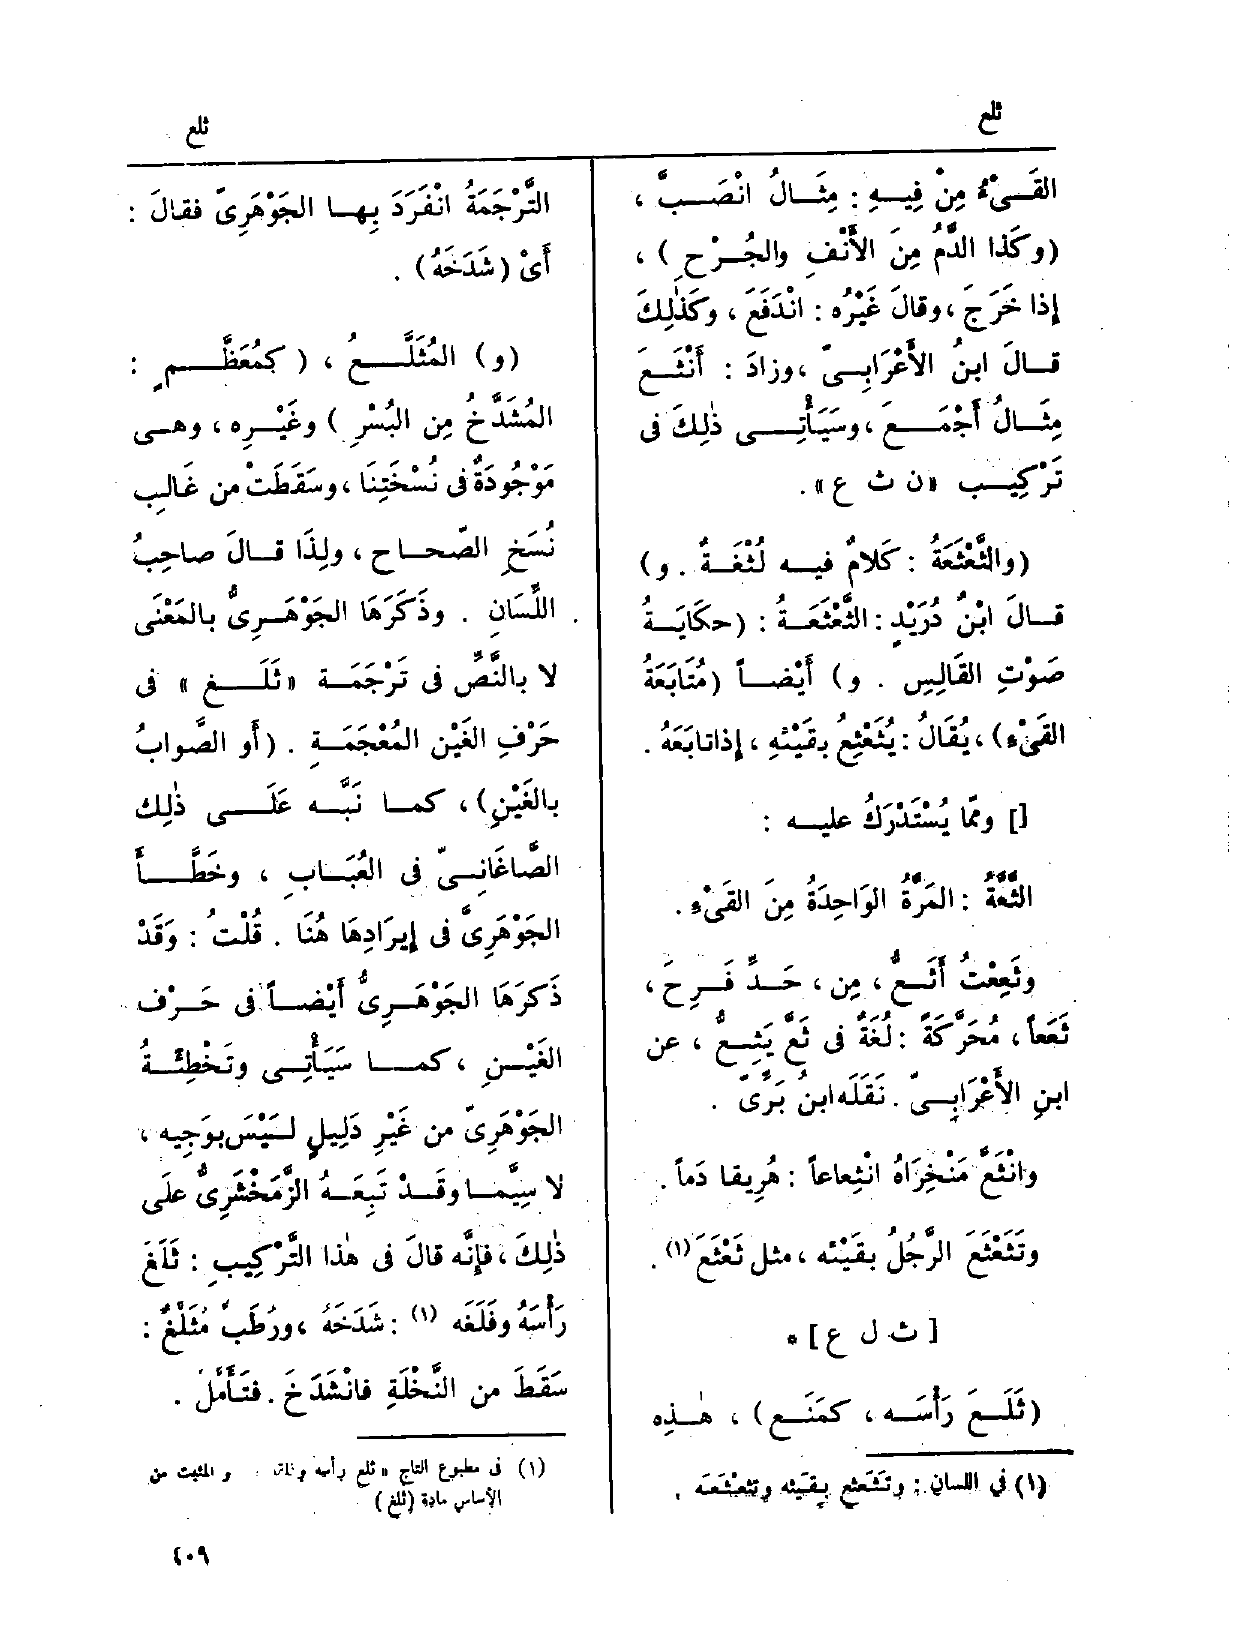 ثلع
ثلع
القَىْءُ مِنْ فِيهِ : مِثَالُ انْصَبَّ ،
(وكَذا الدَّمُ مِنَ الأَنْفِ والجُرْحِ) ،
إذا خَرَجَ ، وقالَ غَيْرُه : انْدَفَعَ ، وكَذٰلِكَ
قالَ ابنُ الأَعْرَابِىِّ ، وزادَ : أَنْثَعَ
مِثَالُ أَجْمَعَ ، وسَيَأْتِى ذٰلِكَ فى
تَرْكِيبِ «ن ث ع» .
(والثَّعْثَعَةُ : كَلامٌ فيه لُثْغَةٌ . و)
قالَ ابْنُ دُرَيْدٍ : الثَّعْثَعَةُ : (حكايَةُ
صَوْتِ القَالِسِ . و) أَيْضاً (مُتَابَعَةُ
القَىْءِ) ، يُقَالُ : يُثَعْثِعُ بقَيْئِهِ ، إذا تابَعَهُ .
[] ومّا يُسْتَدْرَكُ عليه :
الثَّعَّةُ : المَرَّةُ الوَاحِدَةُ مِنَ القَىْءِ .
وثَعِعْتُ أَثَعُّ ، مِن ، حَدِّ فَرِحَ ،
ثَعَعاً ، مُحَرَّكَةً : لُغَةٌ فى ثَعَّ يَثِعُّ ، عن
ابنِ الأَعْرَابِىِّ . نَقَلَه ابنُ بَرِّىّ .
وانْثَعَّ مَنْخِرَاهُ انْثِعاعاً : هُرِيقا دَماً .
وتَثَعْثَعَ الرَّجُلُ بقَيْئه ، مثل ثَعْثَعَ (١) .
[ ث ل ع ] *
(ثَلَعَ رَأْسَه ، كمَنَع) ، هٰذِه
(١) فى اللسان : وتَثَعثع بقيئه وتَثَعْثَعَه .
التَّرْجَمَةُ انْفَرَدَ بِها الجَوْهَرِىّ فقالَ :
أَىْ (شَدَخَهُ) .
(و) المُثَلَّعُ ، (كمُعَظَّمٍ :
المُشَدَّخُ مِن البُسْرِ) وغَيْرِه ، وهى
مَوْجُودَةٌ فى نُسْخَتِنَا ، وسَقَطَتْ من غَالِبِ
نُسَخِ الصّحاح ، ولِذَا قالَ صاحِبُ
اللِّسَانِ . وذَكَرَهَا الجَوْهَرِىُّ بالمَعْنَى
لا بالنَّصِّ فى تَرْجَمَة «ثَلَغ» فى
حَرْفِ الغَيْن المُعْجَمَةِ . (أَو الصَّوابُ
بالغَيْنِ) ، كما نَبَّه عَلَى ذٰلِك
الصَّاغَانِىّ فى العُبَابِ ، وخَطَّأَ
الجَوْهَرِىَّ فى إيرَادِهَا هُنَا . قُلْتُ : وَقَدْ
ذَكَرَهَا الجَوْهَرِىُّ أَيْضاً فى حَرْف
الغَيْنِ ، كما سَيَأْتِى وتَخْطِئَةُ
الجَوْهَرِىّ من غَيْرِ دَلِيلٍ لَيْسَ بوَجِيه ،
لا سِيَّمَا وقَدْ تَبِعَهُ الزَّمَخْشَرِىُّ علَى
ذٰلِكَ ، فإنَّه قالَ فى هٰذا التَّرْكِيبِ : ثَلَغَ
رَأْسَهُ وفَلَغَه (١) : شَدَخَهُ ، ورُطَبٌ مُثَلَّغٌ :
سَقَطَ من النَّخْلَةِ فانْشَدَخَ . فتَأَمَّلْ .
(١) فى مطبوع التاج «ثلع رأسه و والمثبت من
الأساس مادة (ثلغ)
٤٠٩